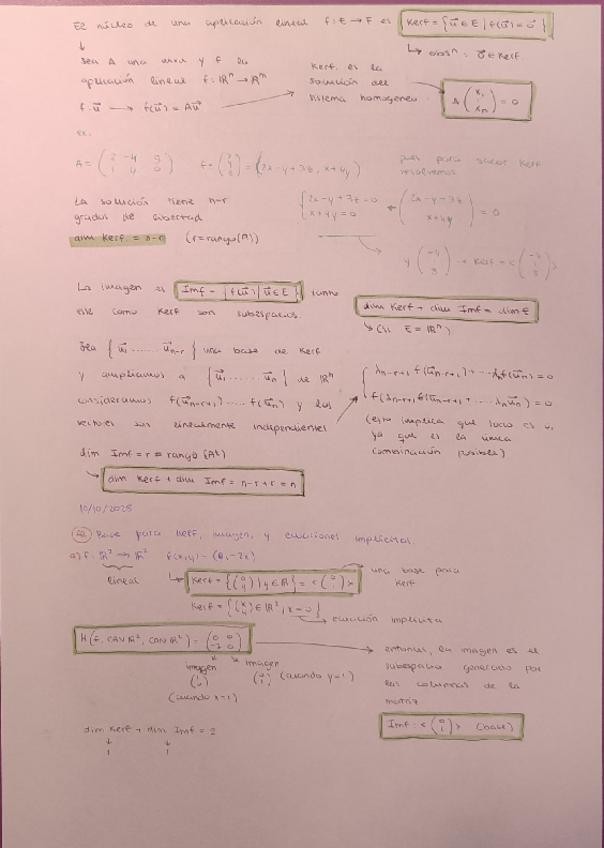 El núcleo de una aplicación lineal f: E → F es Kerf = {u⃗ ∈ E | f(u⃗) = 0⃗}
↳ obsⁿ: 0⃗ ∈ Kerf.
sea A una y f la
aplicación lineal f: ℝⁿ → ℝᵐ
f: u⃗ → f(u⃗) = Au⃗
Kerf. es la
solución del
sistema homogeneo.
A (x₁ ⋮ xₙ) = 0
ex.
A = f = = (2x-y+3z, x+4y)
pues para sacar Kerf
resolvemos
La solución tiene n-r
grados de libertad
dim Kerf. = n-r (r = rango(A))
x+4y = 0
La imagen es Imf = {f(u⃗) | u⃗ ∈ E} tanto
este como Kerf son subespacios.
dim Kerf + dim Imf = dim E
↳ (si E = ℝⁿ)
Sea {u⃗₁ ...... u⃗ₙ₋ᵣ} una base de Kerf
y ampliamos a {u⃗₁ ...... u⃗ₙ} de ℝⁿ
consideramos f(u⃗ₙ₋ᵣ₊₁) .... f(u⃗ₙ) y los
vectores son linealmente independientes
λₙ₋ᵣ₊₁ f(u⃗ₙ₋ᵣ₊₁) + ... λₙ f(u⃗ₙ) = 0
f(λₙ₋ᵣ₊₁ u⃗ₙ₋ᵣ₊₁ + .... λₙ u⃗ₙ) = 0
(esto implica que todo es 0,
ya que es la única
combinación posible)
dim Imf = r = rango (A)
↳ dim Kerf + dim Imf = n-r+r = n
10/10/2025
Base para kerf, imagen, y ecuaciones implícitas.
a) f: ℝ² → ℝ² f(x,y) = (0, -2x)
lineal
↳ Kerf = {(0 y) | y ∈ ℝ} = <(0 1)>
una base para
Kerf
Kerf = {(x y) ∈ ℝ², x = 0}
→ ecuación implícita
M(f, CAN ℝ², CAN ℝ²) =
entonces, la imagen es el
subespacio generado por
las columnas de la
matriz
imagen
(1 0)
(cuando x=1)
imagen
(0 1) (cuando y=1)
Imf = <(0 1)> (base)
dim Kerf + dim Imf = 2
↓ ↓
1 1